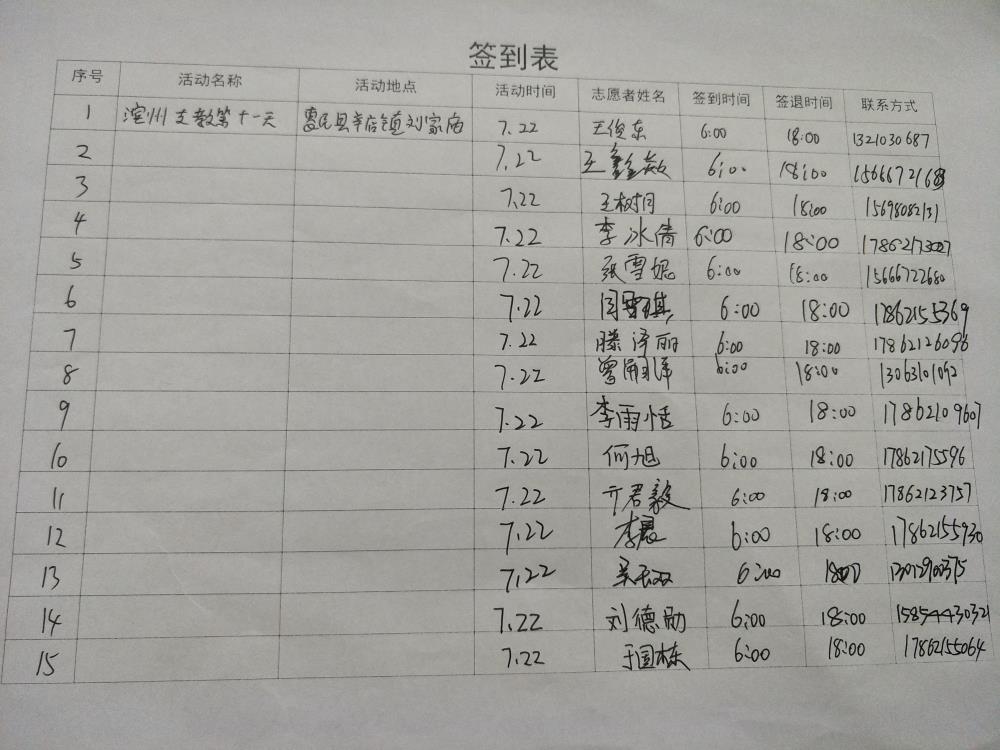 签到表
序号 活动名称 活动地点 活动时间 志愿者姓名 签到时间 签退时间 联系方式
1 滨州支教第十一天 惠民县辛店镇刘家庙 7.22 王俊东 6:00 18:00 1321030687
2 7.22 王鑫 6:00 18:00
3 7.22 王树月 6:00 18:00 15698082131
4 7.22 李冰倩 6:00 18:00 17862173027
5 7.22 张雪妮 6:00 18:00 15666722680
6 7.22 闫雪琪 6:00 18:00 17862155369
7 7.22 滕泽丽 6:00 18:00 17862126096
8 7.22 6:00 18:00 13063101092
9 7.22 李雨恬 6:00 18:00 17862109607
10 7.22 何旭 6:00 18:00 17862175596
11 7.22 亓君毅 6:00 18:00 17862123757
12 7.22 李晨 6:00 18:00 17862155930
13 7.22 6:00 1800 13012900375
14 7.22 刘德勋 6:00 18:00 15854430321
15 7.22 于国栋 6:00 18:00 17862155064